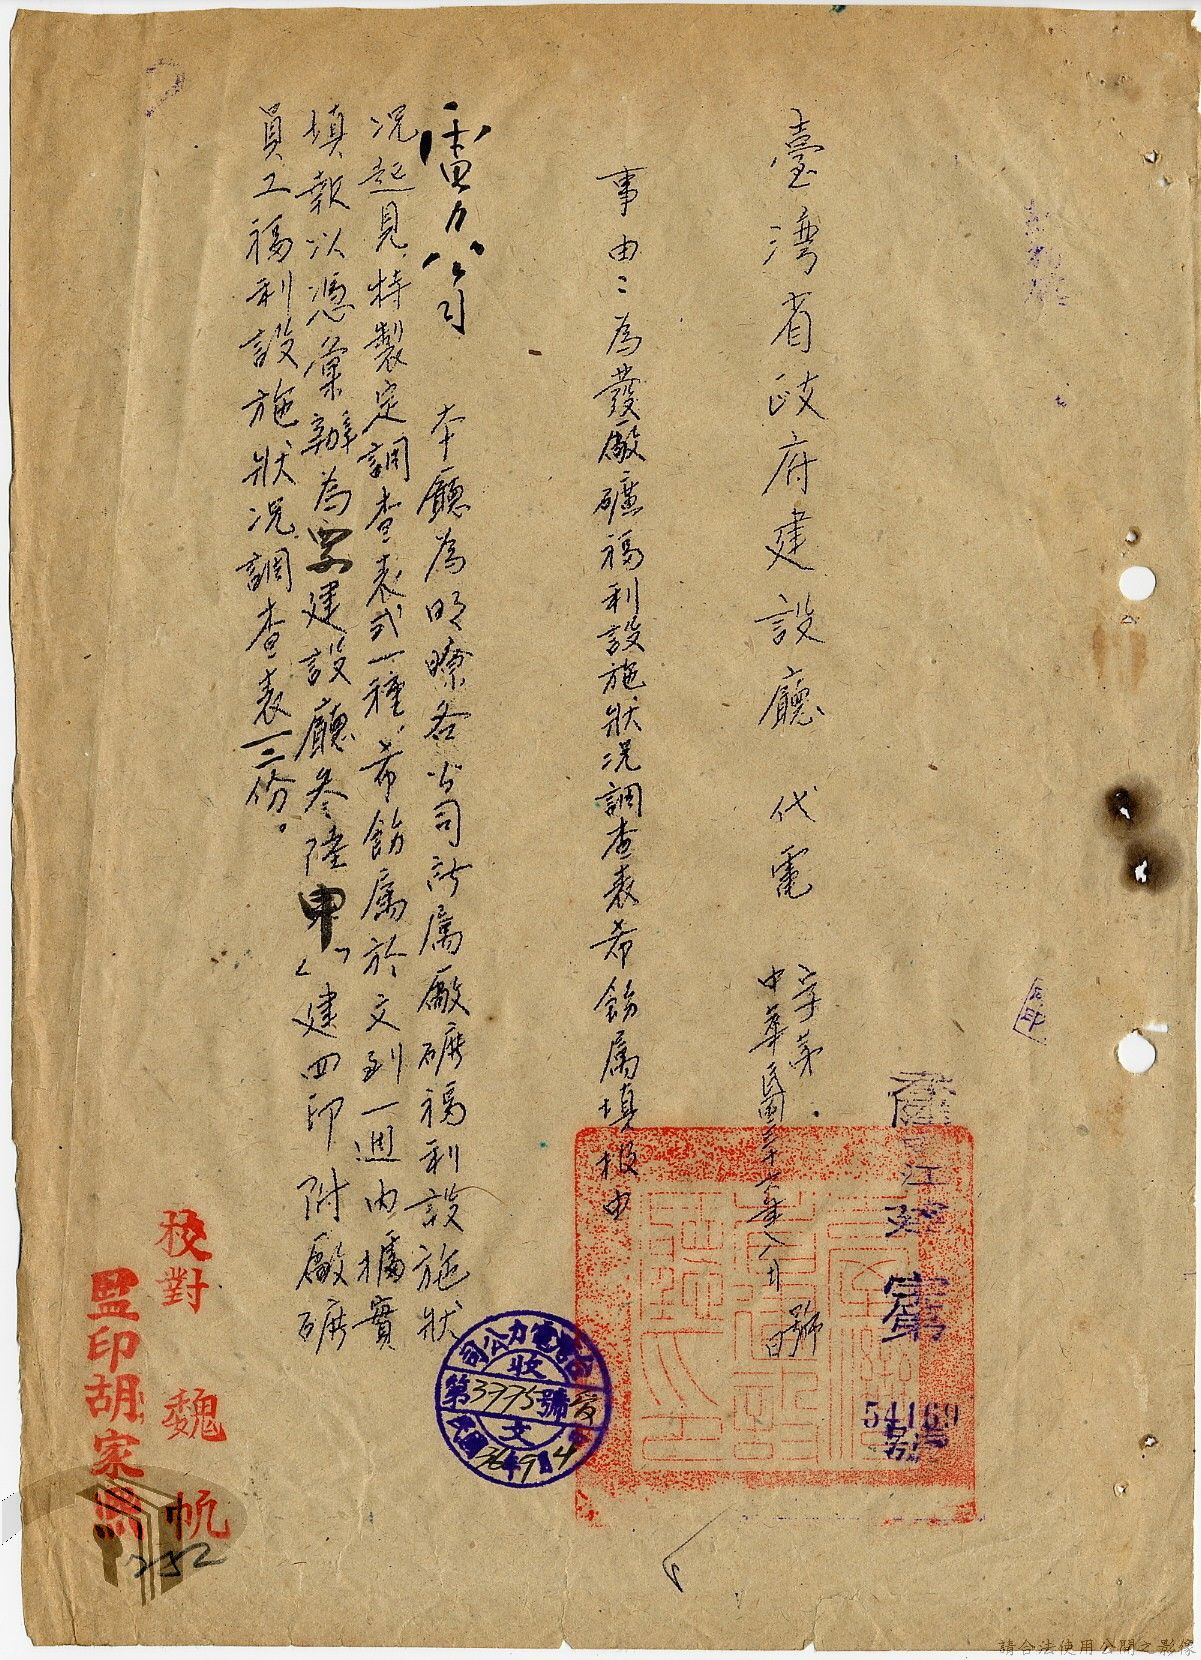 臺灣省政府建設廳 代電
字第 號
中華民國三十六年八月 日
54169
號
事由：為發廠礦福利設施狀況調查表希飭屬填报由
電力公司 本廳為明瞭各公司所属廠礦福利設施狀
况起見，特製定調查表式一種，希飭属於文到一週内據實
填報以憑彙辦為要建設廳叁陸申「」建四印附廠礦
員工福利設施狀况調查表三份。
台灣電力公司
收文
第3775號
民國36年9月4
校對 魏帆
監印胡家
252
請合法使用公開之影像